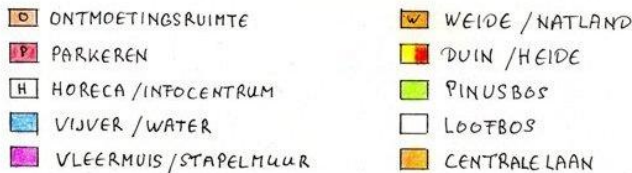 O ONTMOETINGSRUIMTE
P PARKEREN
H HORECA / INFOCENTRUM
VIJVER / WATER
VLEERMUIS / STAPELMUUR
W WEIDE / NATLAND
DUIN / HEIDE
PINUSBOS
LOOFBOS
CENTRALE LAAN